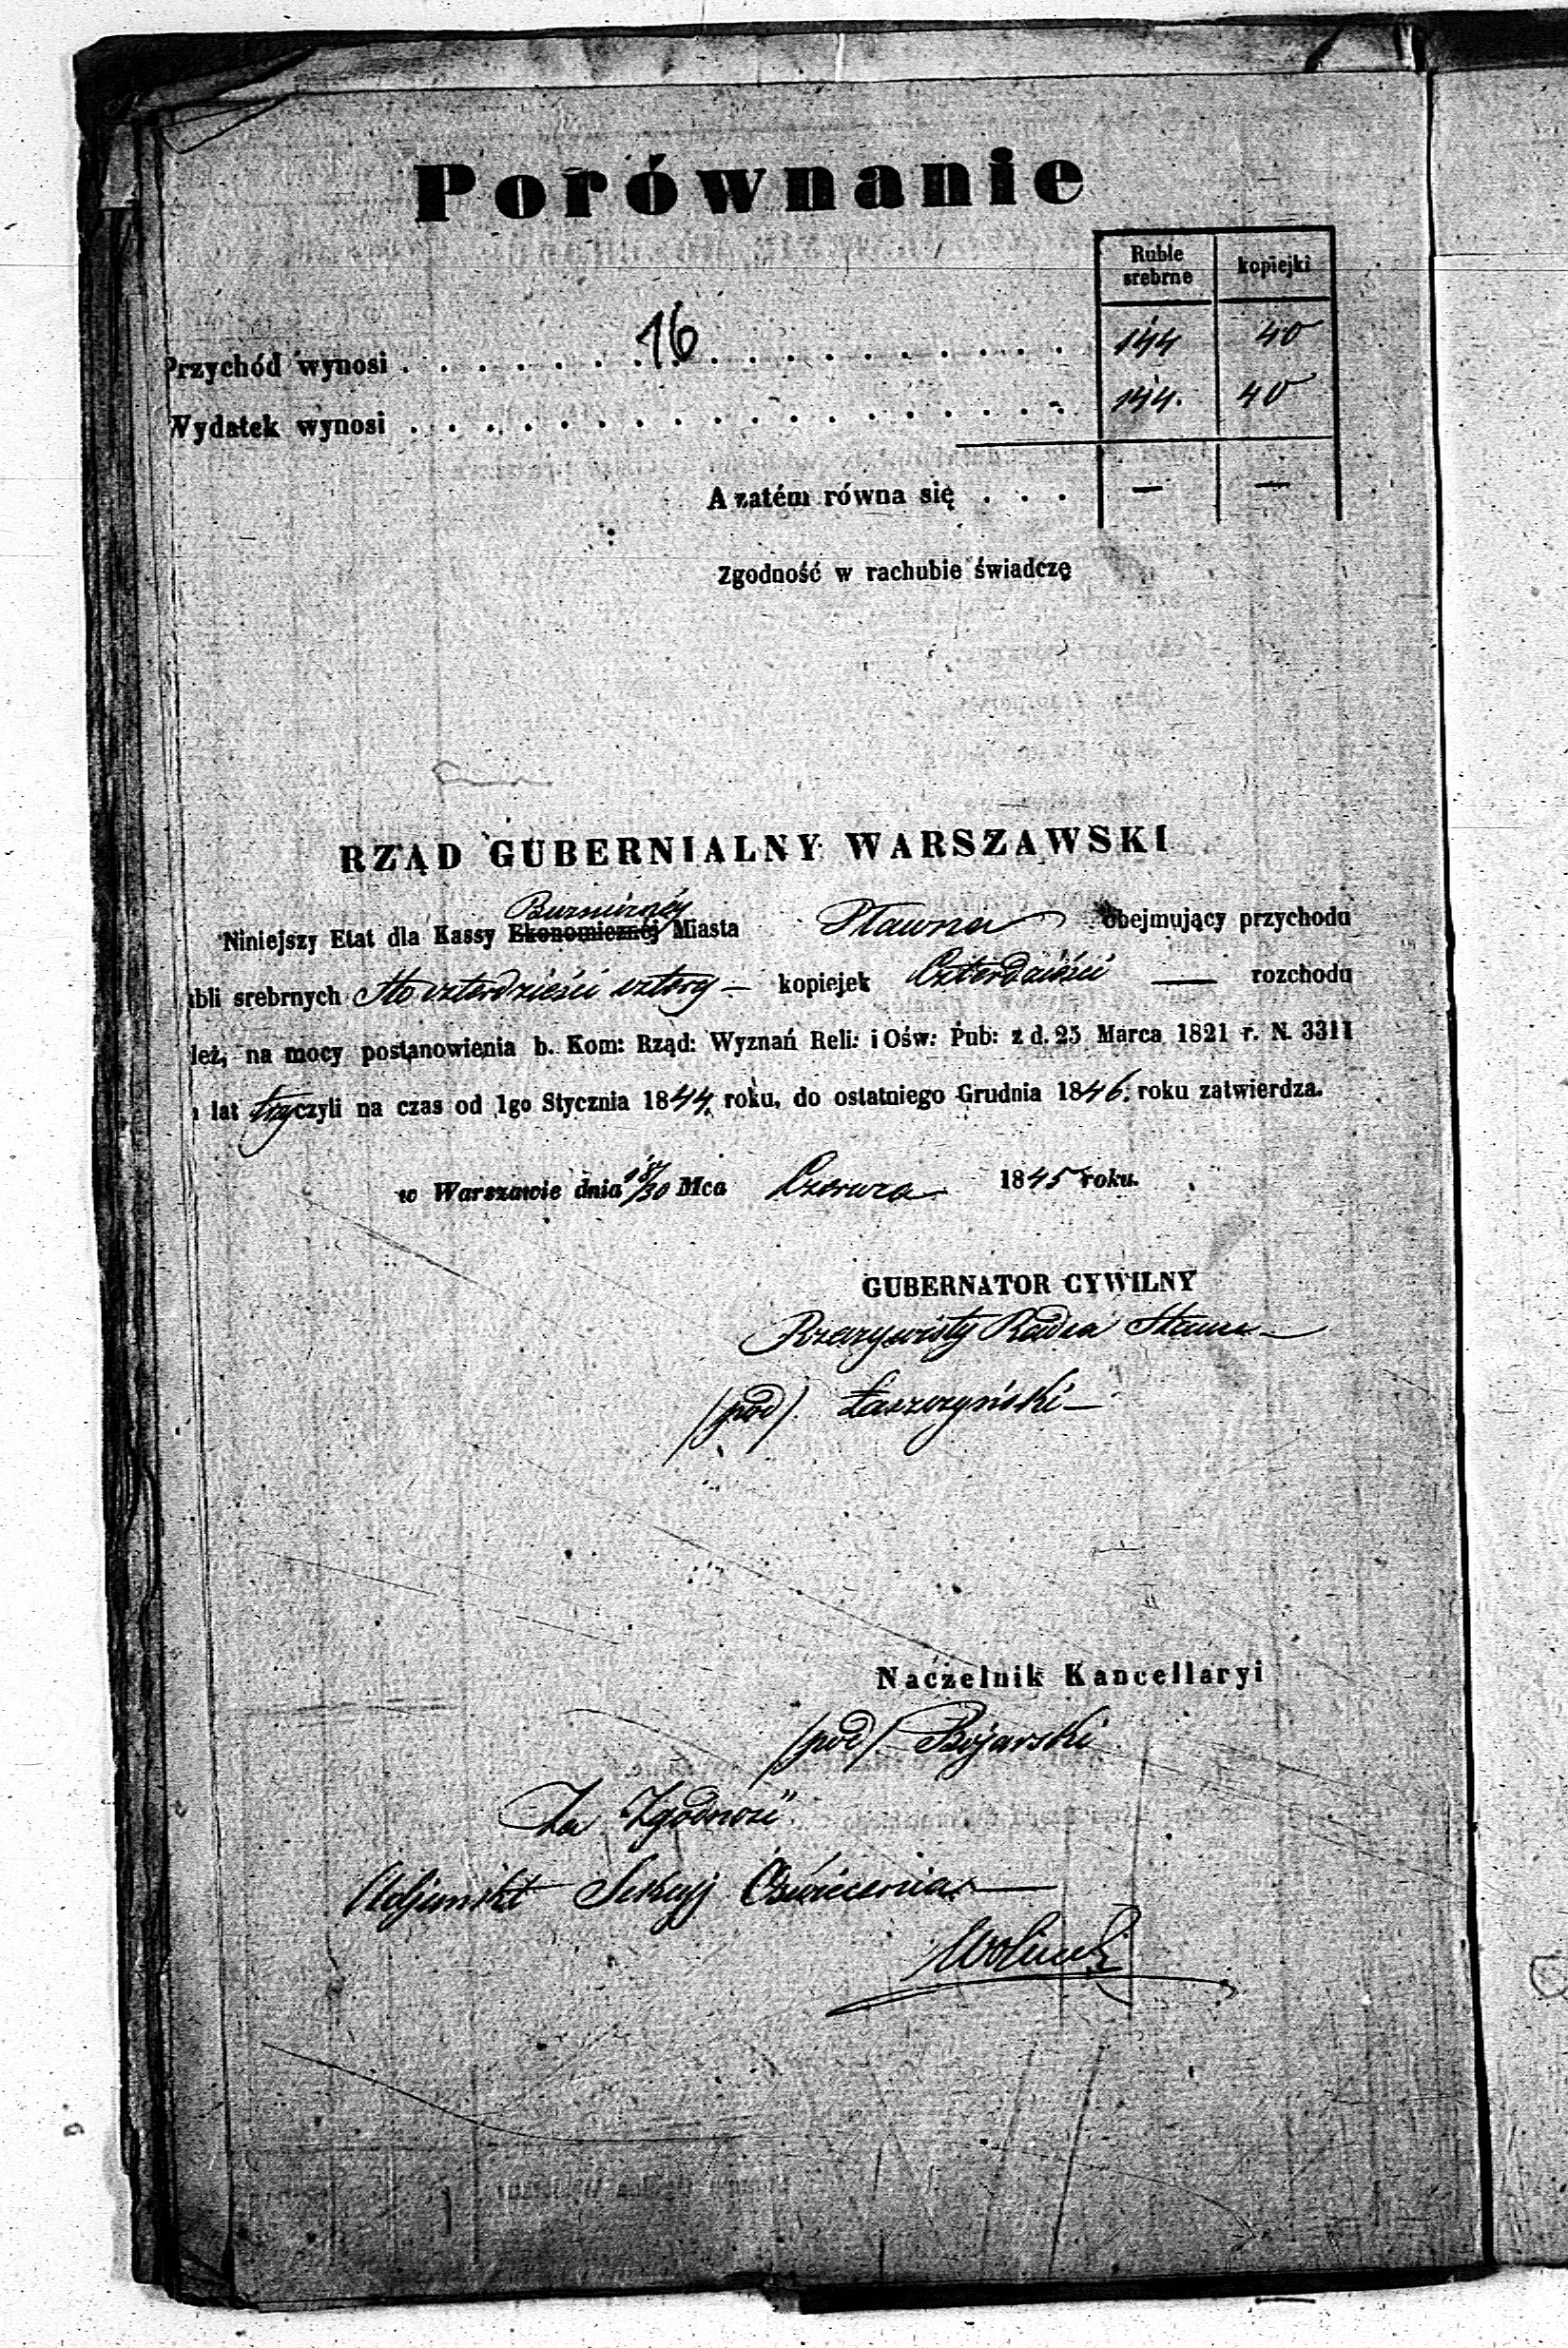 Porównanie
Ruble srebrne kopiejki
16
Przychód wynosi . . . . . . . . . . . . . . . . . . 144 40
Wydatek wynosi . . . . . . . . . . . . . . . . . . 144. 40
A zatém równa się . . . — —
Zgodność w rachubie świadczę
RZĄD GUBERNIALNY WARSZAWSKI
Bużnicznéj
Niniejszy Etat dla Kassy Ekonomicznéj Miasta Pławna obejmujący przychodu
bli srebrnych Sto czterdzieści cztery — kopiejek Czterdzieści — rozchodu
leż, na mocy postanowienia b. Kom: Rząd: Wyznań Reli: i Ośw: Pub: z d. 25 Marca 1821 r. N. 3311
lat trzy czyli na czas od 1go Stycznia 1844 roku, do ostatniego Grudnia 1846. roku zatwierdza.
w Warszawie dnia 18/30 Mca Czerwca 1845 roku.
GUBERNATOR CYWILNY
Rzeczywisty Radca Stanu —
/pod/ Łaszczyński —
Naczelnik Kancellaryi
/pod/ Bojarski
Za Zgodność
Adjunkt Sekcyj Oświecenia —